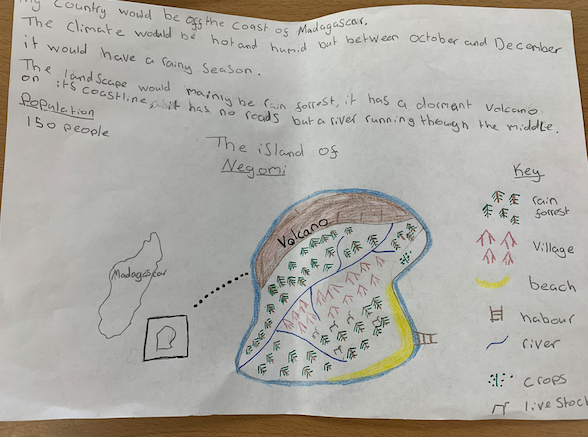 My Country would be off the coast of Madagascar.
The climate would be hot and humid but between october and December
it would have a rainy season.
The landscape would mainly be rain forrest, it has a dormant volcano
on its coastline, it has no roads but a river running through the middle.
Population
150 people
The island of
Negomi
Key
rain
forrest
Village
beach
habour
river
crops
livestock
Volcano
Madagascar